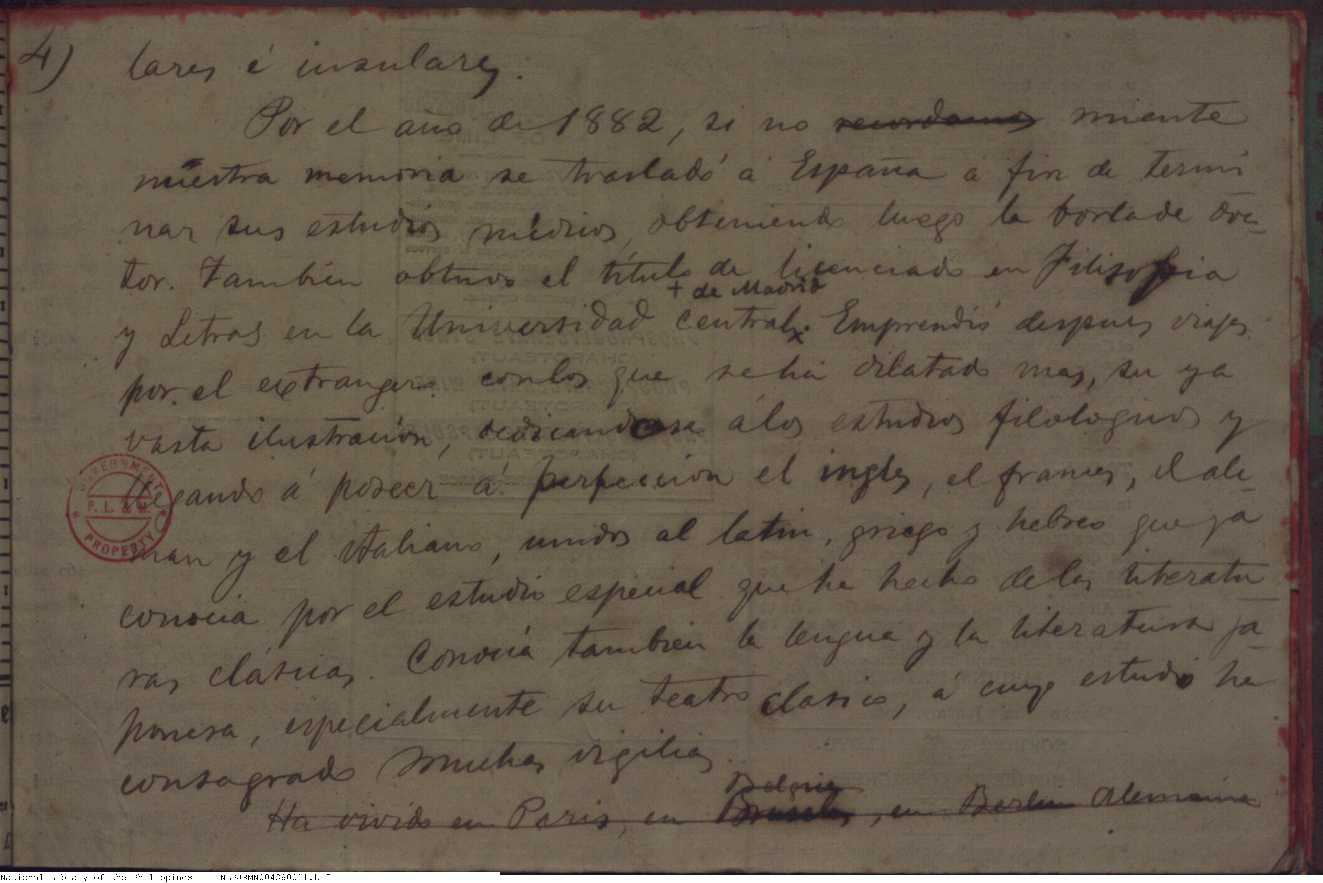 4) lares é insulares.
Por el año de 1882, si no recordamos miente
nuestra memoria se trasladó á España á fin de termi
nar sus estudios médicos, obteniendo luego la borla de doc-
tor. Tambien obtuvo el título de licenciado en Filosofia
+ de Madrid
y Letras en la Universidad central x. Emprendió despues viajes
por el extrangero con los que se ha dilatado mas, su ya
vasta ilustración, dedicandose á los estudios filologicos y
llegando á poseer á perfeccion el ingles, el frances, el ale-
man y el italiano, unidos al latin, griego y hebreo que ya
conocia por el estudio especial que ha hecho de las literatu
ras clásicas. Conocia tambien la lengua y la literatura ja-
ponesa, especialmente su teatro clasico, á cuyo estudio ha
consagrado muchas vigilias.
Belgica
Ha vivido en Paris, en Bruselas, en Berlin Alemania
GOVERNMENT
P. L. & M.
PROPERTY
National Library of the Philippines